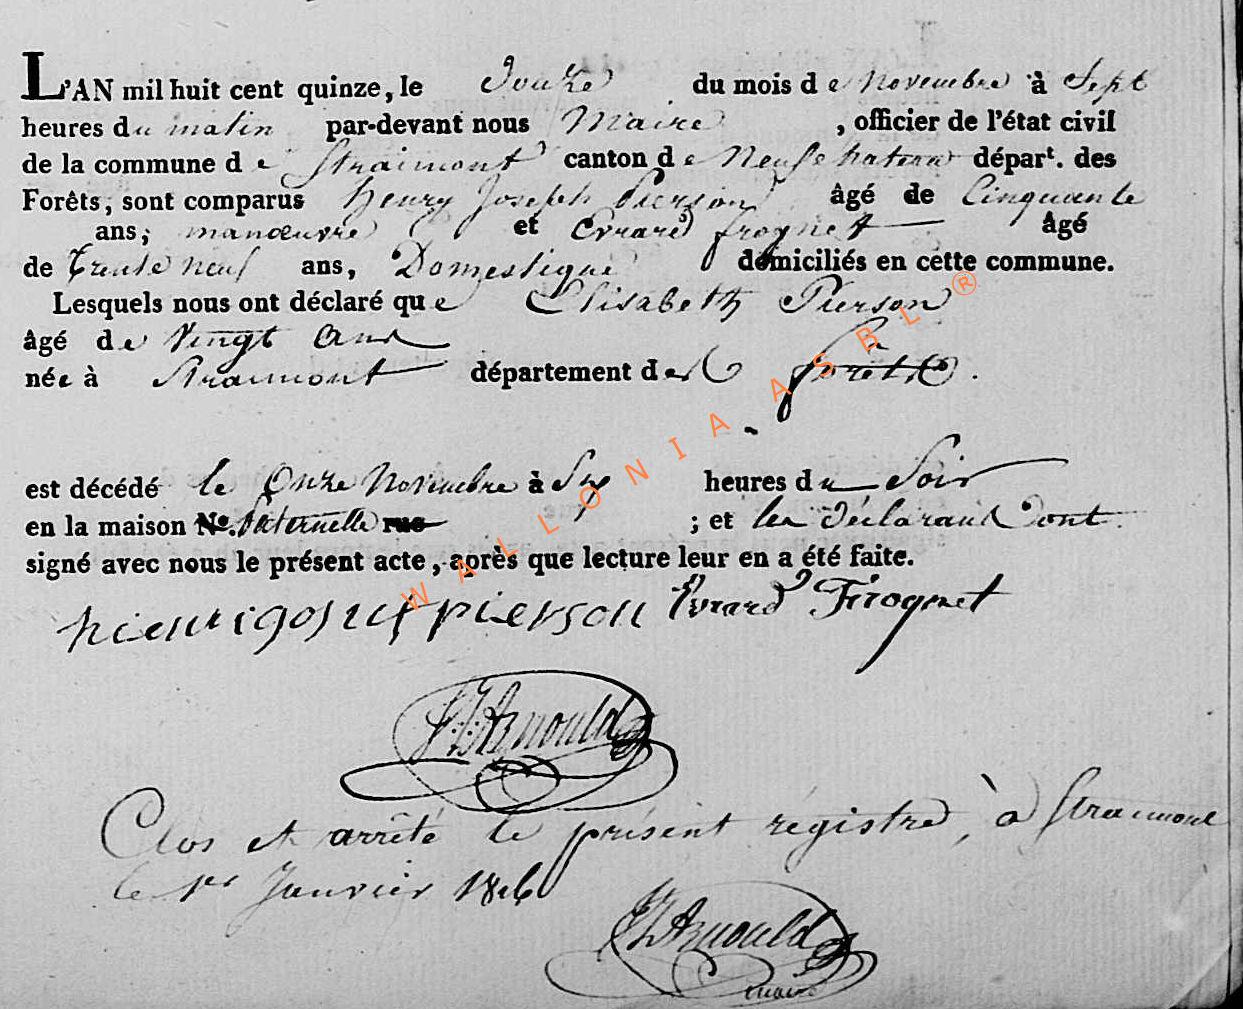 L'AN mil huit cent quinze, le Douze du mois de Novembre à Sept
heures du matin par-devant nous Maire , officier de l'état civil
de la commune de Straimont canton de Neufchateau départ. des
Forêts, sont comparus henry Joseph Pierson âgé de Cinquante
ans, manœuvre et Evrard frognet âgé
de trente neuf ans, Domestique domiciliés en cette commune.
Lesquels nous ont déclaré que Elisabeth Pierson
âgé de Vingt ans
née à Straimont département des forets.
est décédé le Onze Novembre à Six heures du Soir
en la maison No. paternelle rue ; et les déclarants ont
signé avec nous le présent acte, après que lecture leur en a été faite.
hienrigosuef pierson Evrard Frognet
Arnould
Clos et arrêté le présent régistre, à Straimont
le 1er Janvier 1816
Arnould
maire
WALLONIA ASBL ®